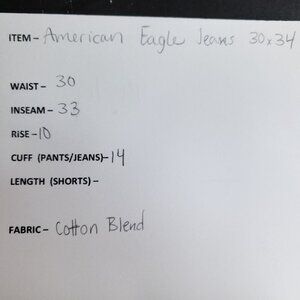 ITEM – American Eagle Jeans 30x34
WAIST – 30
INSEAM – 33
RISE – 10
CUFF (PANTS/JEANS) – 14
LENGTH (SHORTS) –
FABRIC – Cotton Blend